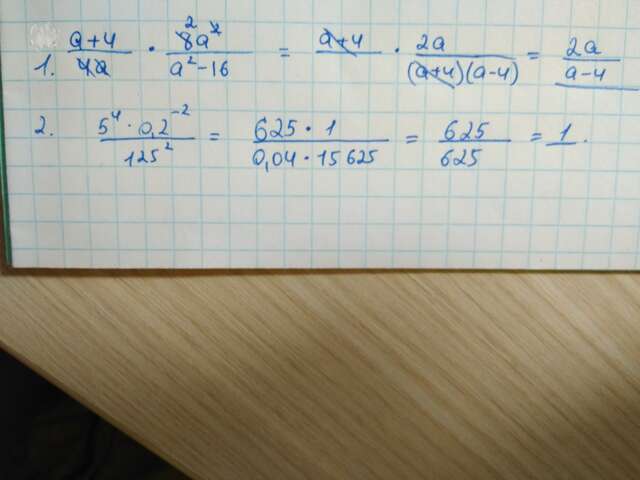 1. (a+4)/(4a) · (8a²)/(a²-16) = (a+4) · (2a)/((a+4)(a-4)) = (2a)/(a-4)
2. (5⁴ · 0,2⁻²)/(125²) = (625 · 1)/(0,04 · 15625) = 625/625 = 1.